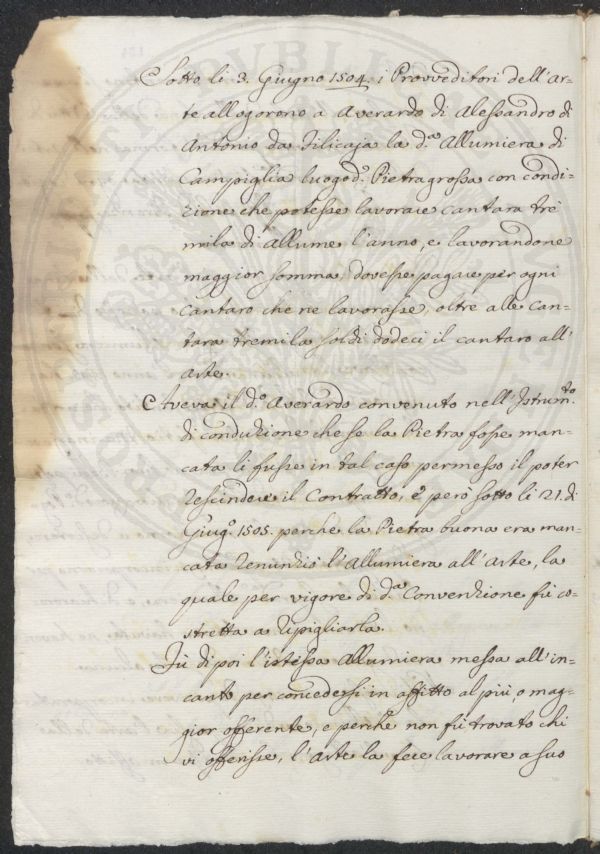 Sotto li 3. Giugno 1504. i Provveditori dell'Ar-
te allogorono a Averardo di Alessandro di
Antonio da Filicaja la d.ª Allumiera di
Campiglia luogo d.º Pietragrossa con condi-
zione che potesse lavorare cantara tre
mila di Allume l'anno, e lavorandone
maggior somma, dovesse pagare per ogni
cantaro che ne lavorasse, oltre alle can-
tara tremila soldi dodeci il cantaro all'
Arte.
Aveva il d.º Averardo convenuto nell'Istrum.to
di conduzione che se la Pietra fosse man-
cata li fusse in tal caso permesso il poter
rescindere il Contratto, e però sotto li 21. di
Giug.º 1505. perche la Pietra buona era man-
cata renunziò l'Allumiera all'Arte, la
quale per vigore di d.ª Convenzione fù co-
stretta a ripigliarla.
Fù di poi l'istessa Allumiera messa all'in-
canto per concedersi in affitto al più, o mag-
gior offerente, e perche non fù trovato chi
vi offerisse, l'Arte la fece lavorare a suo